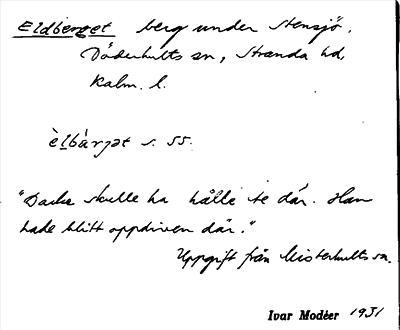 Eldberget berg under Stensjö,
Döderhults sn, Stranda hd,
Kalm. l.
èlbárjət s. 55.
"Dacke skulle ha hålle te där. Han
hade blitt oppdriven där."
Uppgift från Misterhults sn.
Ivar Modéer 1931